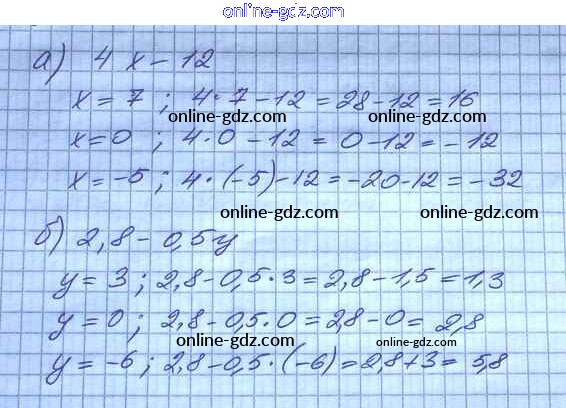 online-gdz.com
а) 4x - 12
x = 7 ; 4·7 - 12 = 28 - 12 = 16
online-gdz.com online-gdz.com
x = 0 ; 4·0 - 12 = 0 - 12 = -12
x = -5 ; 4·(-5) - 12 = -20 - 12 = -32
online-gdz.com online-gdz.com
б) 2,8 - 0,5y
y = 3 ; 2,8 - 0,5·3 = 2,8 - 1,5 = 1,3
online-gdz.com online-gdz.com
y = 0 ; 2,8 - 0,5·0 = 2,8 - 0 = 2,8
online-gdz.com online-gdz.com
y = -6 ; 2,8 - 0,5·(-6) = 2,8 + 3 = 5,8
online-gdz.com